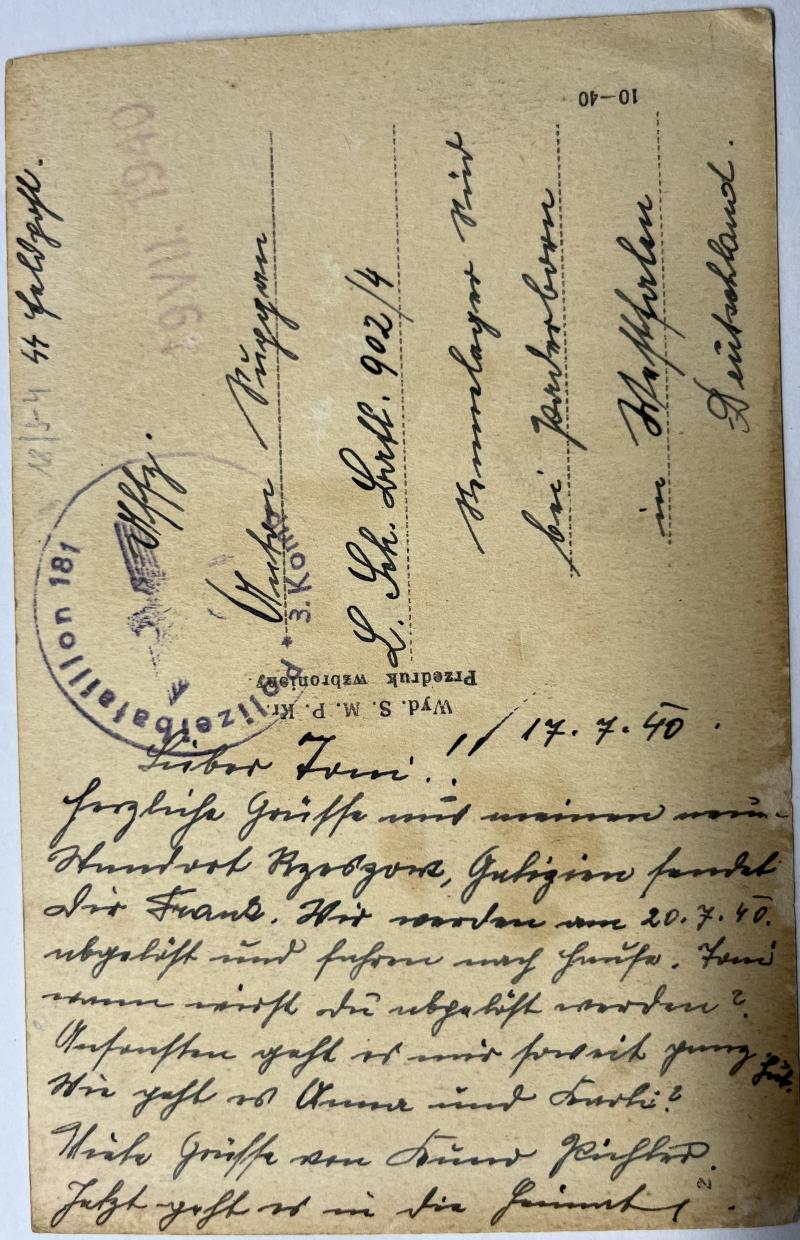 18/5-4 SS Feldpost.
19. VIII. 1940
Polizeibataillon 181 * 3. Kom
Uffz.
Anton
L. Sch. Batl. 902/4
Sennelager Süd
bei Paderborn
in Westfalen
Deutschland.
10-40
Wyd. S. M. P. Kr.
Przedruk wzbroniony
17. 7. 40.
Lieber Toni!!
Herzliche Grüsse aus meinen neuen
Standort Rzeszow, Galizien sendet
Dir Frank. Wir werden am 20. 7. 40.
abgelöst und fahren nach Hause. Toni
wann wirst du abgelöst werden?
Ansonsten geht es mir soweit ganz gut.
Wie geht es Anna und Karli?
Viele Grüsse von Pichler.
Jetzt geht es in die Heimat
2.